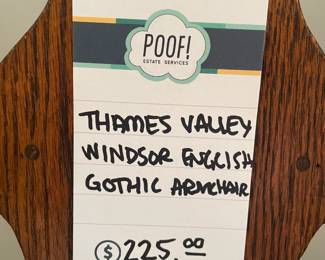 POOF!
ESTATE SERVICES
THAMES VALLEY
WINDSOR ENGLISH
GOTHIC ARMCHAIR
$225.00